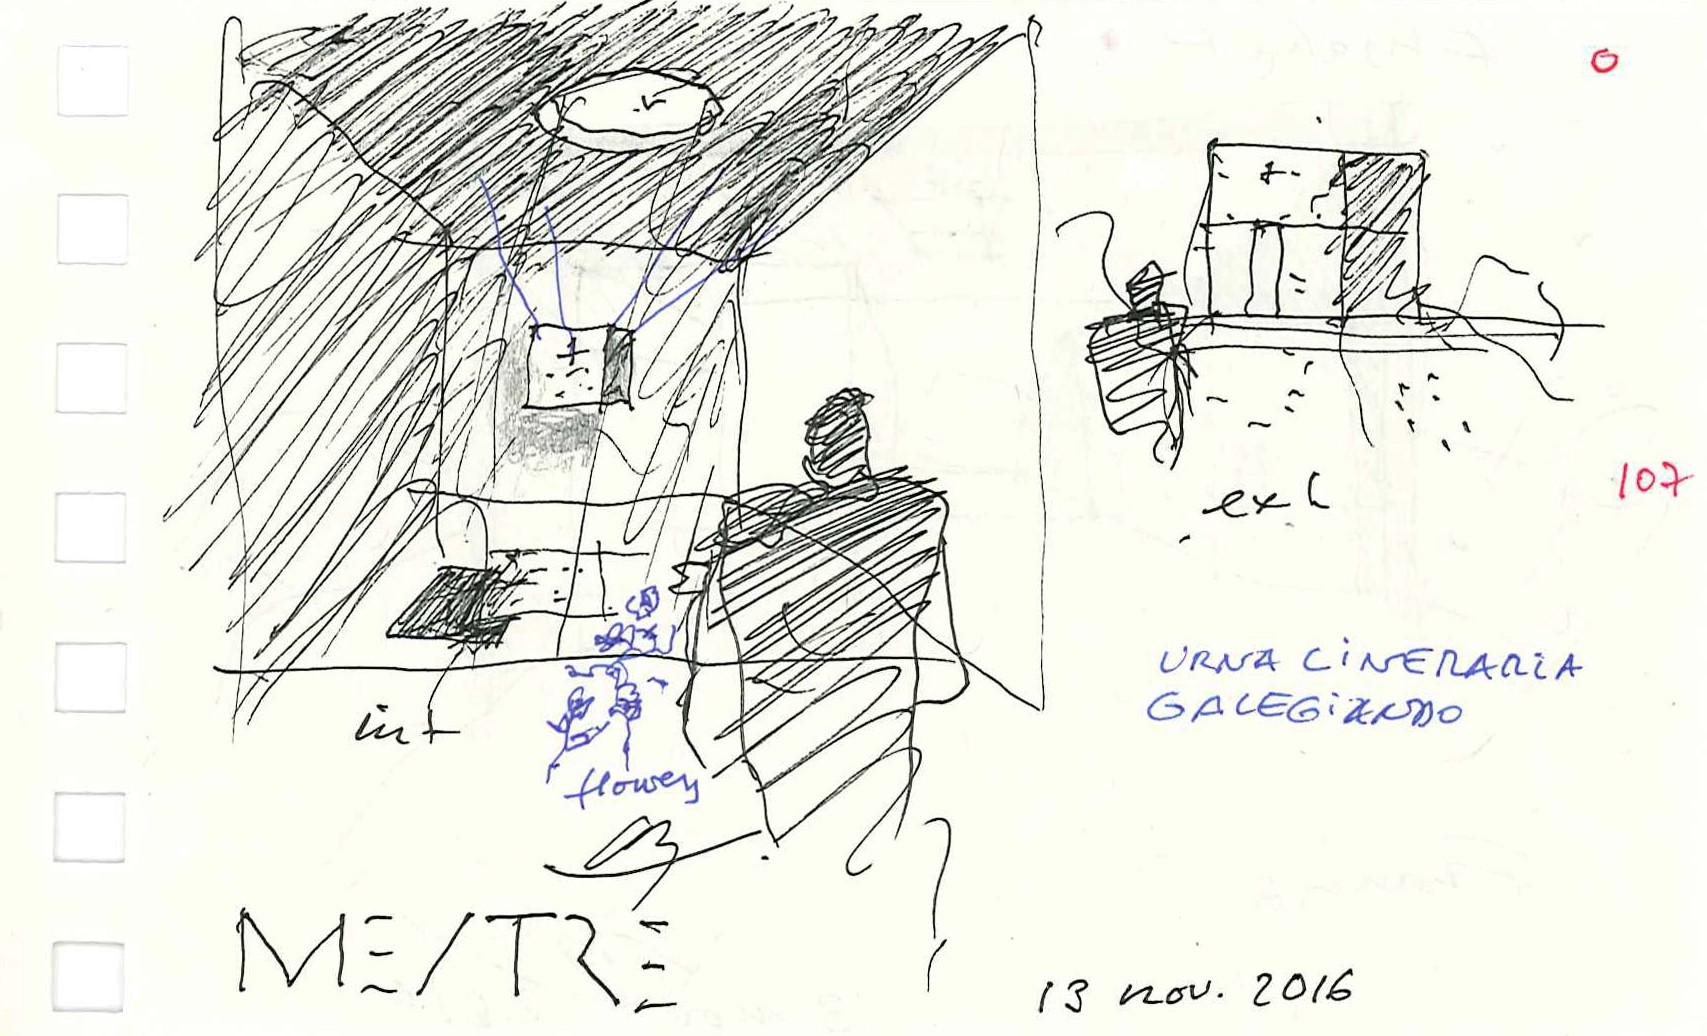 0
107
ext
URNA CINERARIA
GALEGiANDO
int
flowers
MESTRE
13 nov. 2016